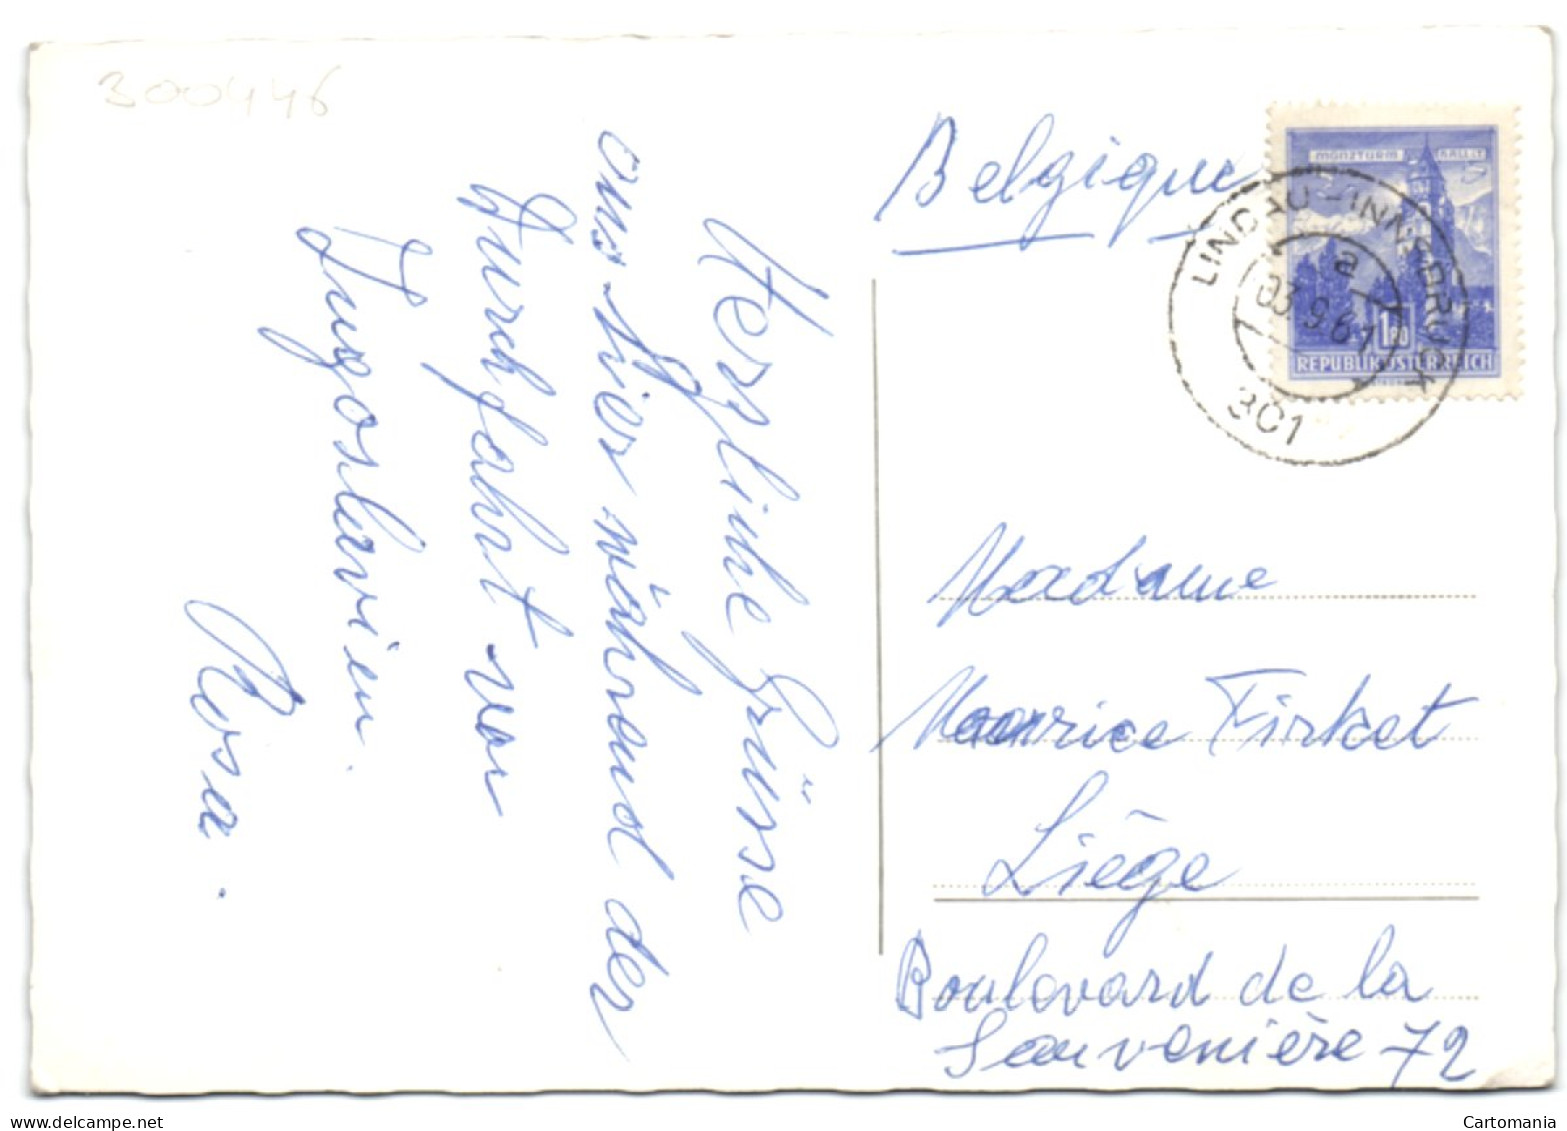 300446
Herzliche Grüsse
aus hier während der
Durchfahrt von
Jugoslavien.
Rosa.
Belgique
MÜNZTURM HALL i.T.
1.80
REPUBLIK ÖSTERREICH
LINDAU-INNSBRUCK
a
03.9.61
301
Madame
Maurice Firket
Liège
Boulevard de la
Sauvenière 72
Cartomania